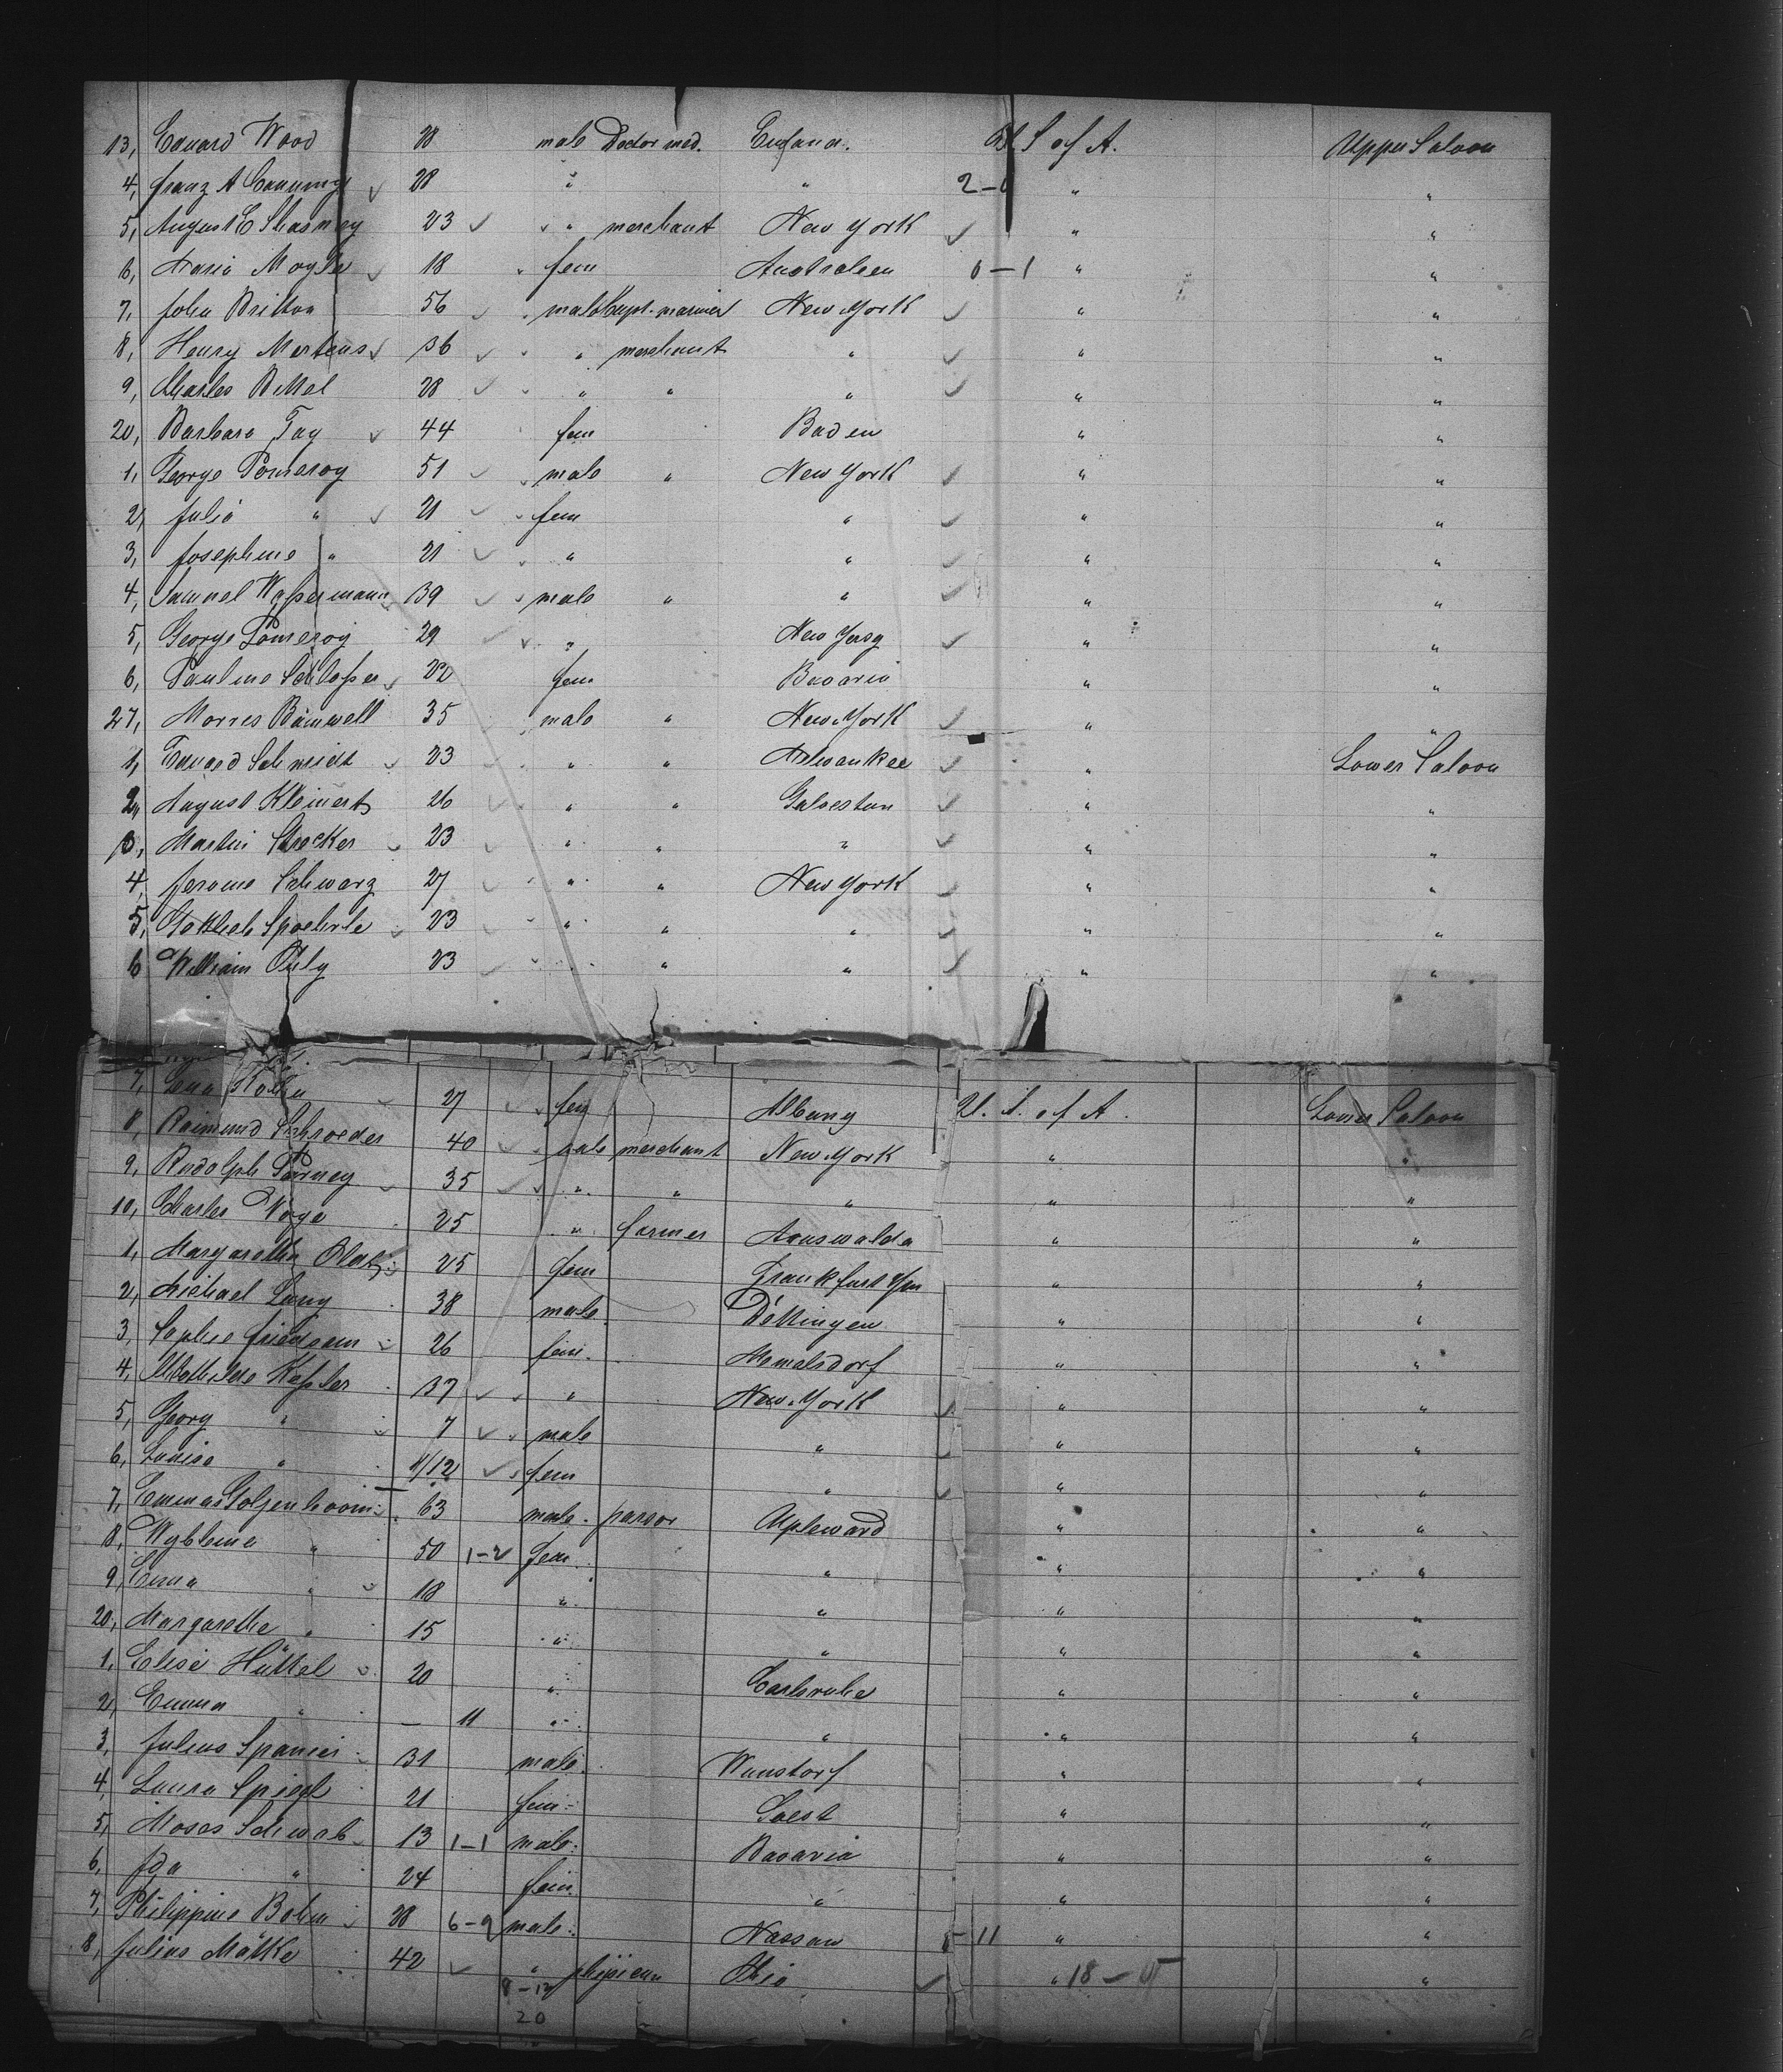 13, Eduard Wood 28 male Doctor med. England. U. S of A. Upper Saloon
4, Franz A 28 " " 2– " "
5, August E 23 " merchant New York " "
6, Maria 18 fem Australien 0–1 " "
7, John Britton 56 male Capt. mariner New York " "
8, Henry Mertens 36 " merchant " " "
9, Charles Bittel 28 " " " " "
20, Barbara Fay 44 fem Baden " "
1, George Pomeroy 51 male " New York " "
2, Julia " 21 fem " " "
3, Josephine " 21 " " " "
4, Samuel Waßermann 39 male " " " "
5, George Pomeroy 29 " New Jersy " "
6, Pauline Schloßer 20 fem Bavaria " "
27, Morres 35 male " New York " "
1, Eduard Schmidt 23 " " Milwaukee " Lower Saloon
2, August Kleinert 26 " " Galveston " "
3, Martin Strecker 23 " " " " "
4, Jerome Schwarz 27 " " New York " "
5, Gottlieb Spoehrle 23 " " " " "
6 William 23 " " " " "
7, 27 fem Albany U. S. of A. Lower Saloon
8, Raimund Schroeder 40 male merchant New York " "
9, Rudolph 35 " " " " "
10, Charles 25 " farmer Arnswalde " "
1, Margaretha 25 fem Frankfurt " "
2, Michael Lang 38 male Döttingen " "
3, Sophie 26 fem " "
4, Mathilde Keßler 37 " New York " "
5, Georg " 7 male " " "
6, Louise " 11/12 fem " " "
7, 63 male pastor Upleward " "
8, " 50 1–2 fem " " "
9, " 18 " " " "
20, Margarethe " 15 " " " "
1, Elise Hüttel 20 " Carlsruhe " "
2, Emma " — 11 " " " "
3, Julius Spanier 31 male Wunstorf " "
4, Laura Spiegel 21 fem Soest " "
5, Moses Schwab 13 1–1 male Bavaria " "
6, Ida " 24 fem " " "
7, Philippine Bohm 28 6–9 male Nassau 11 " "
8, Julius Mätke 42 " Ohio " 18 – "
20